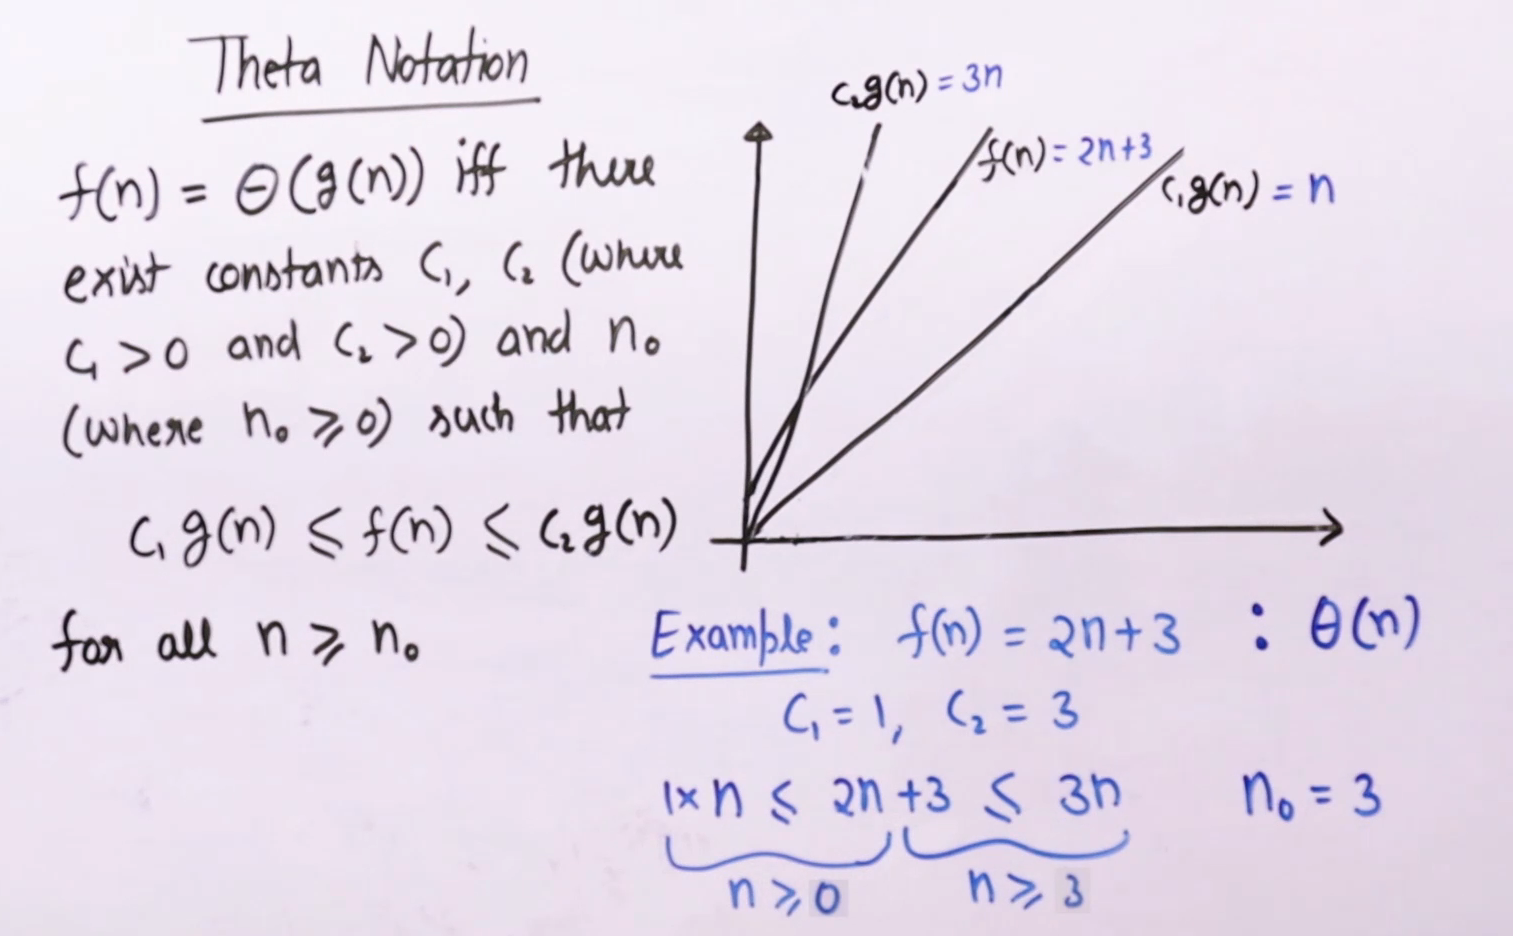 Theta Notation
f(n) = Θ(g(n)) iff there
exist constants C₁, C₂ (where
C₁ > 0 and C₂ > 0) and n₀
(where n₀ ⩾ 0) such that
C₁ g(n) ⩽ f(n) ⩽ C₂ g(n)
for all n ⩾ n₀
C₂g(n) = 3n
f(n) = 2n+3
C₁g(n) = n
Example: f(n) = 2n+3 : θ(n)
C₁ = 1, C₂ = 3
1×n ⩽ 2n+3 ⩽ 3n n₀ = 3
n ⩾ 0 n ⩾ 3